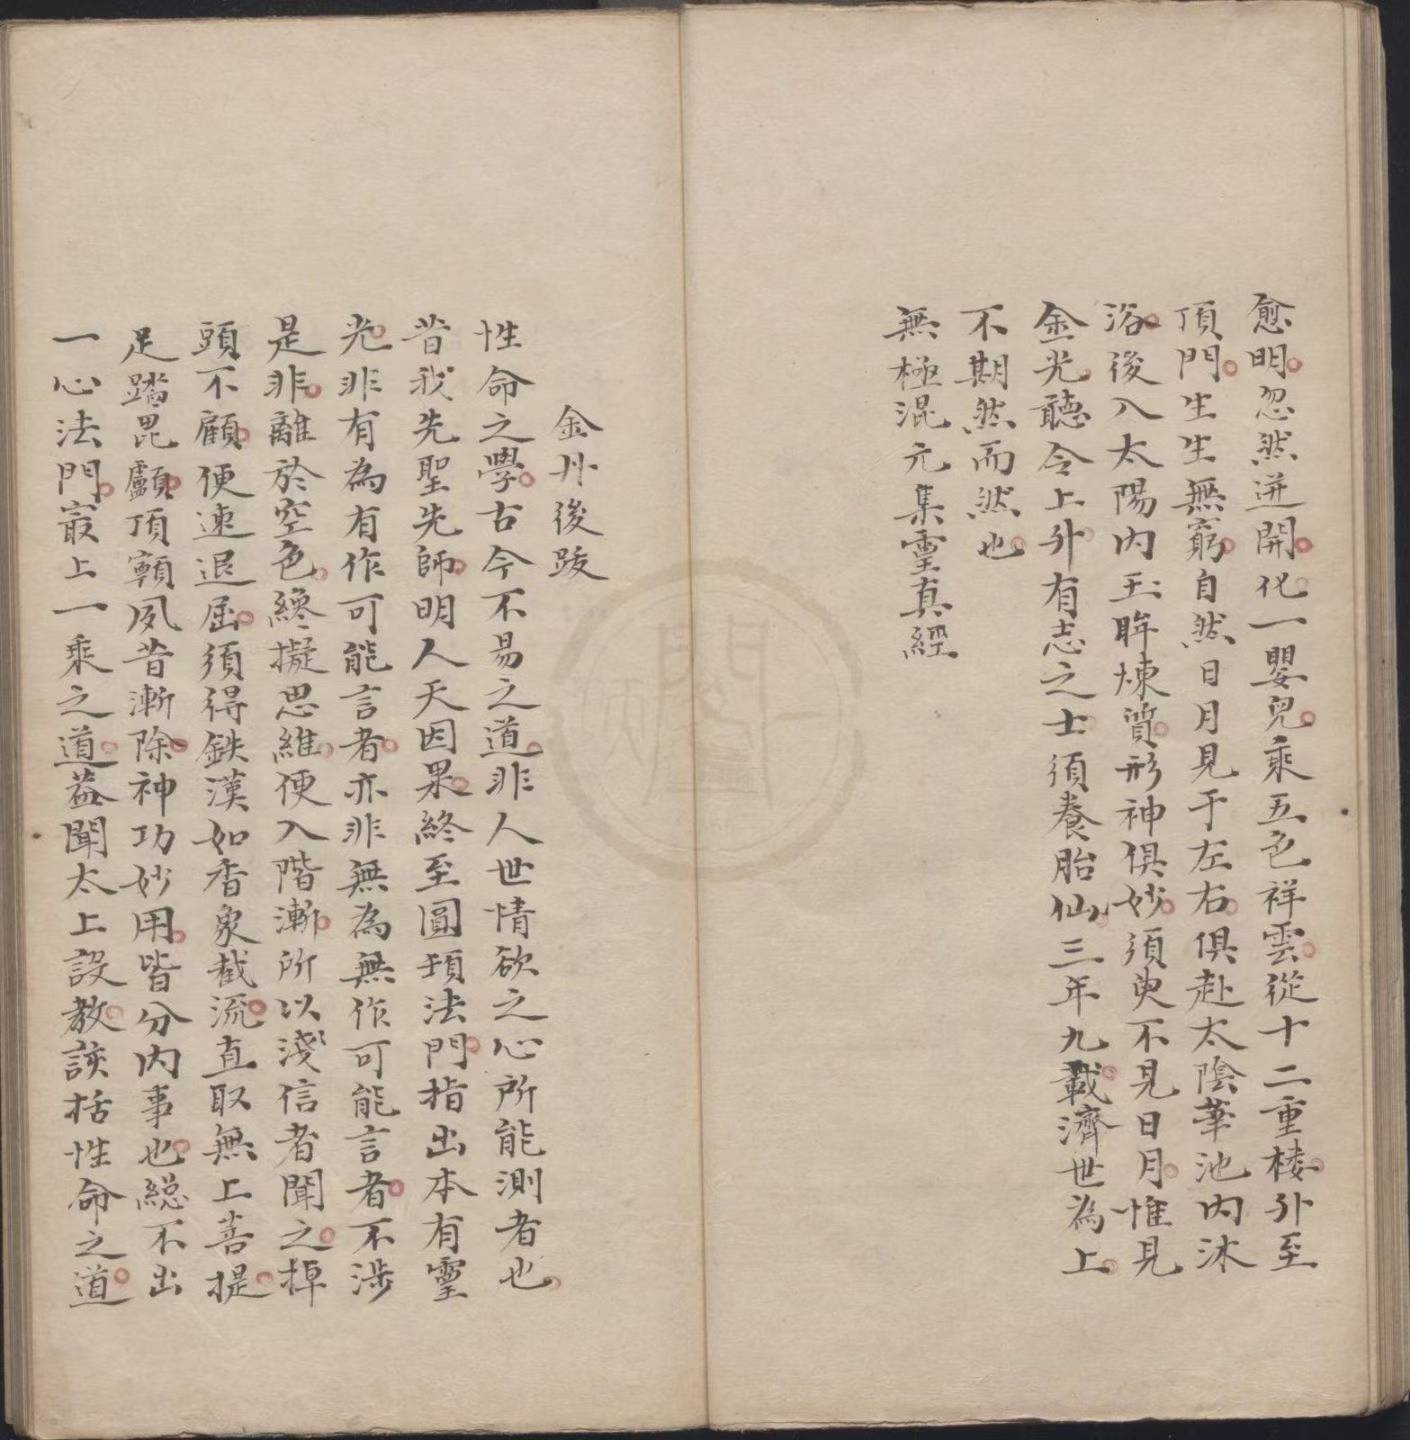 愈明忽然迸開化一嬰兒乘五色祥雲從十二重楼升至
頂門生生無窮自然日月見于左右俱赴太陰華池内沐
浴後入太陽内玉眸煉質形神俱妙須臾不見日月惟見
金光聽令上升有志之士須養胎仙三年九載濟世為上
不期然而然也
無極混元集靈真經
金丹後跋
性命之學古今不易之道非人世情欲之心所能測者也
昔我先聖先師明人天因果終至圓頓法門指出本有靈
光非有為有作可能言者亦非無為無作可能言者不涉
是非離於空色纔擬思維便入階漸所以淺信者聞之掉
頭不顧便速退屈須得鉄漢如香象截流直取無上菩提
足踏毘顱頂𩕳夙昔漸除神功妙用皆分内事也総不出
一心法門最上一乘之道葢聞太上設教該括性命之道